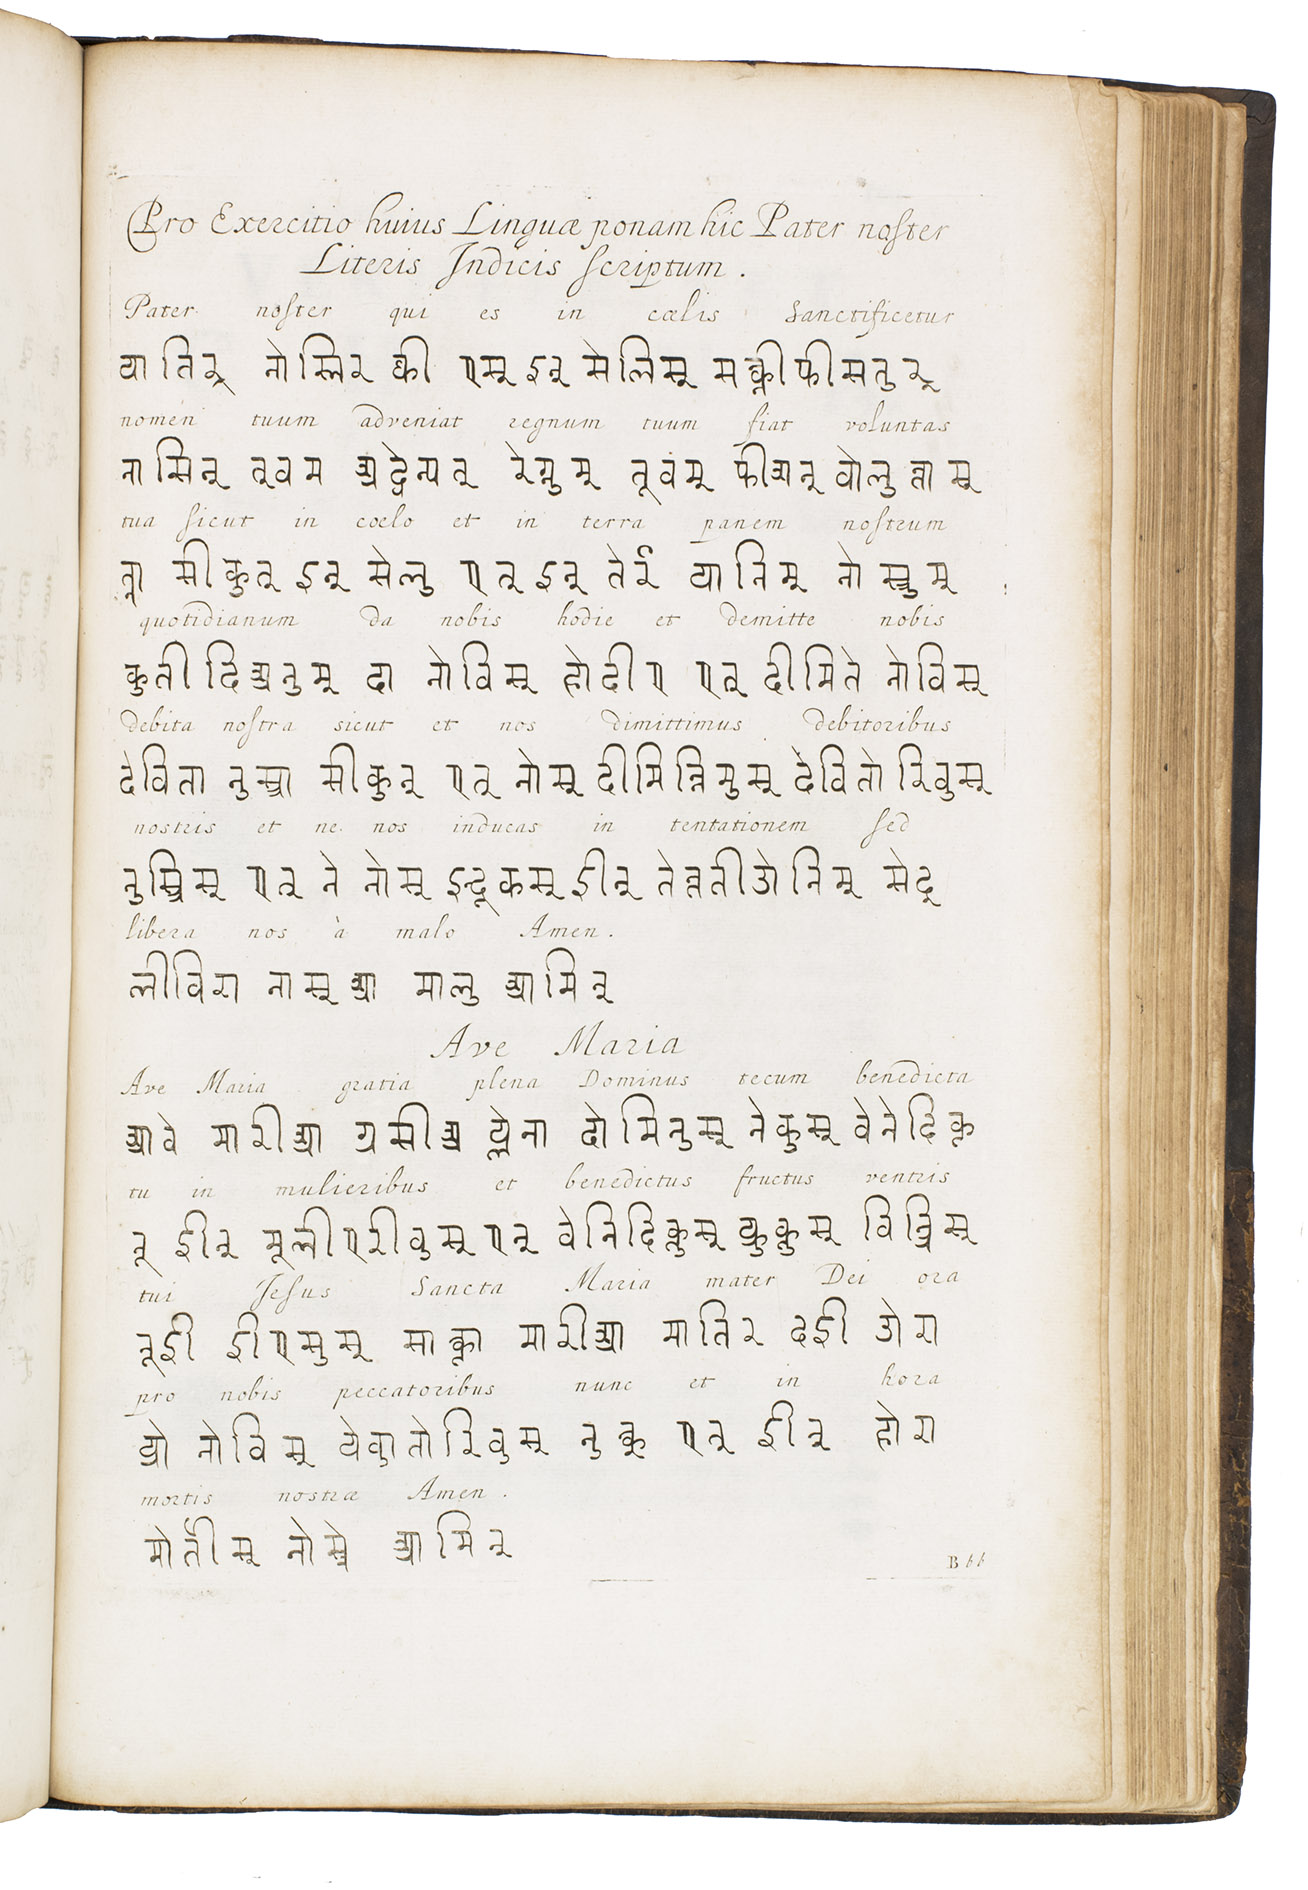 Pro Exercitio huius Linguæ ponam hic Pater noster
Literis Indicis scriptum.
Pater noster qui es in cœlis Sanctificetur
पातिर् नोस्तिर क्वी एस् इन् सेलिस् सङ्क्तीफीसतुर्
nomen tuum adveniat regnum tuum fiat voluntas
नामिन् तूवम अद्वेन्यत् रेग्नुम् तूवंम् फीअत् वोलुन्तास्
tua sicut in cœlo et in terra panem nostrum
त्वा सीकुत् इन् सेलु एत् इन् तेर्र पानिम् नोस्त्रुम्
quotidianum da nobis hodie et demitte nobis
कुतीदिअनुम् दा नोविस् होदीए एत् दीमिते नोविस्
debita nostra sicut et nos dimittimus debitoribus
देविता नुस्त्रा सीकुत् एत् नोस् दीमित्तिमुस् देवितोरिवुस्
nostris et ne nos inducas in tentationem sed
नुस्त्रिस् एत् ने नोस् इन्दूकस् ईन् तेन्ततीओनिम् सेद्
libera nos à malo Amen.
लीविरा नास् आ मालु आमिन्
Ave Maria
Ave Maria gratia plena Dominus tecum benedicta
आवे मारीआ ग्रसीअ प्लेना दोमिनुस् तेकुम् वेनेदिक्त
tu in mulieribus et benedictus fructus ventris
तू ईन् मूलीएरीवुस् एत् वेनिदिक्तुस् फ्रुक्तुस् विन्त्रिस्
tui Jesus Sancta Maria mater Dei ora
तूई ईएसुस् साङ्क्ता मारीआ मातिर दई ओरा
pro nobis peccatoribus nunc et in hora
प्रो नोविस् पेकातोरिवुस् नुङ्क् एत् ईन् होरा
mortis nostræ Amen.
मोर्तीस् नोस्त्रे आमिन्
Bbb